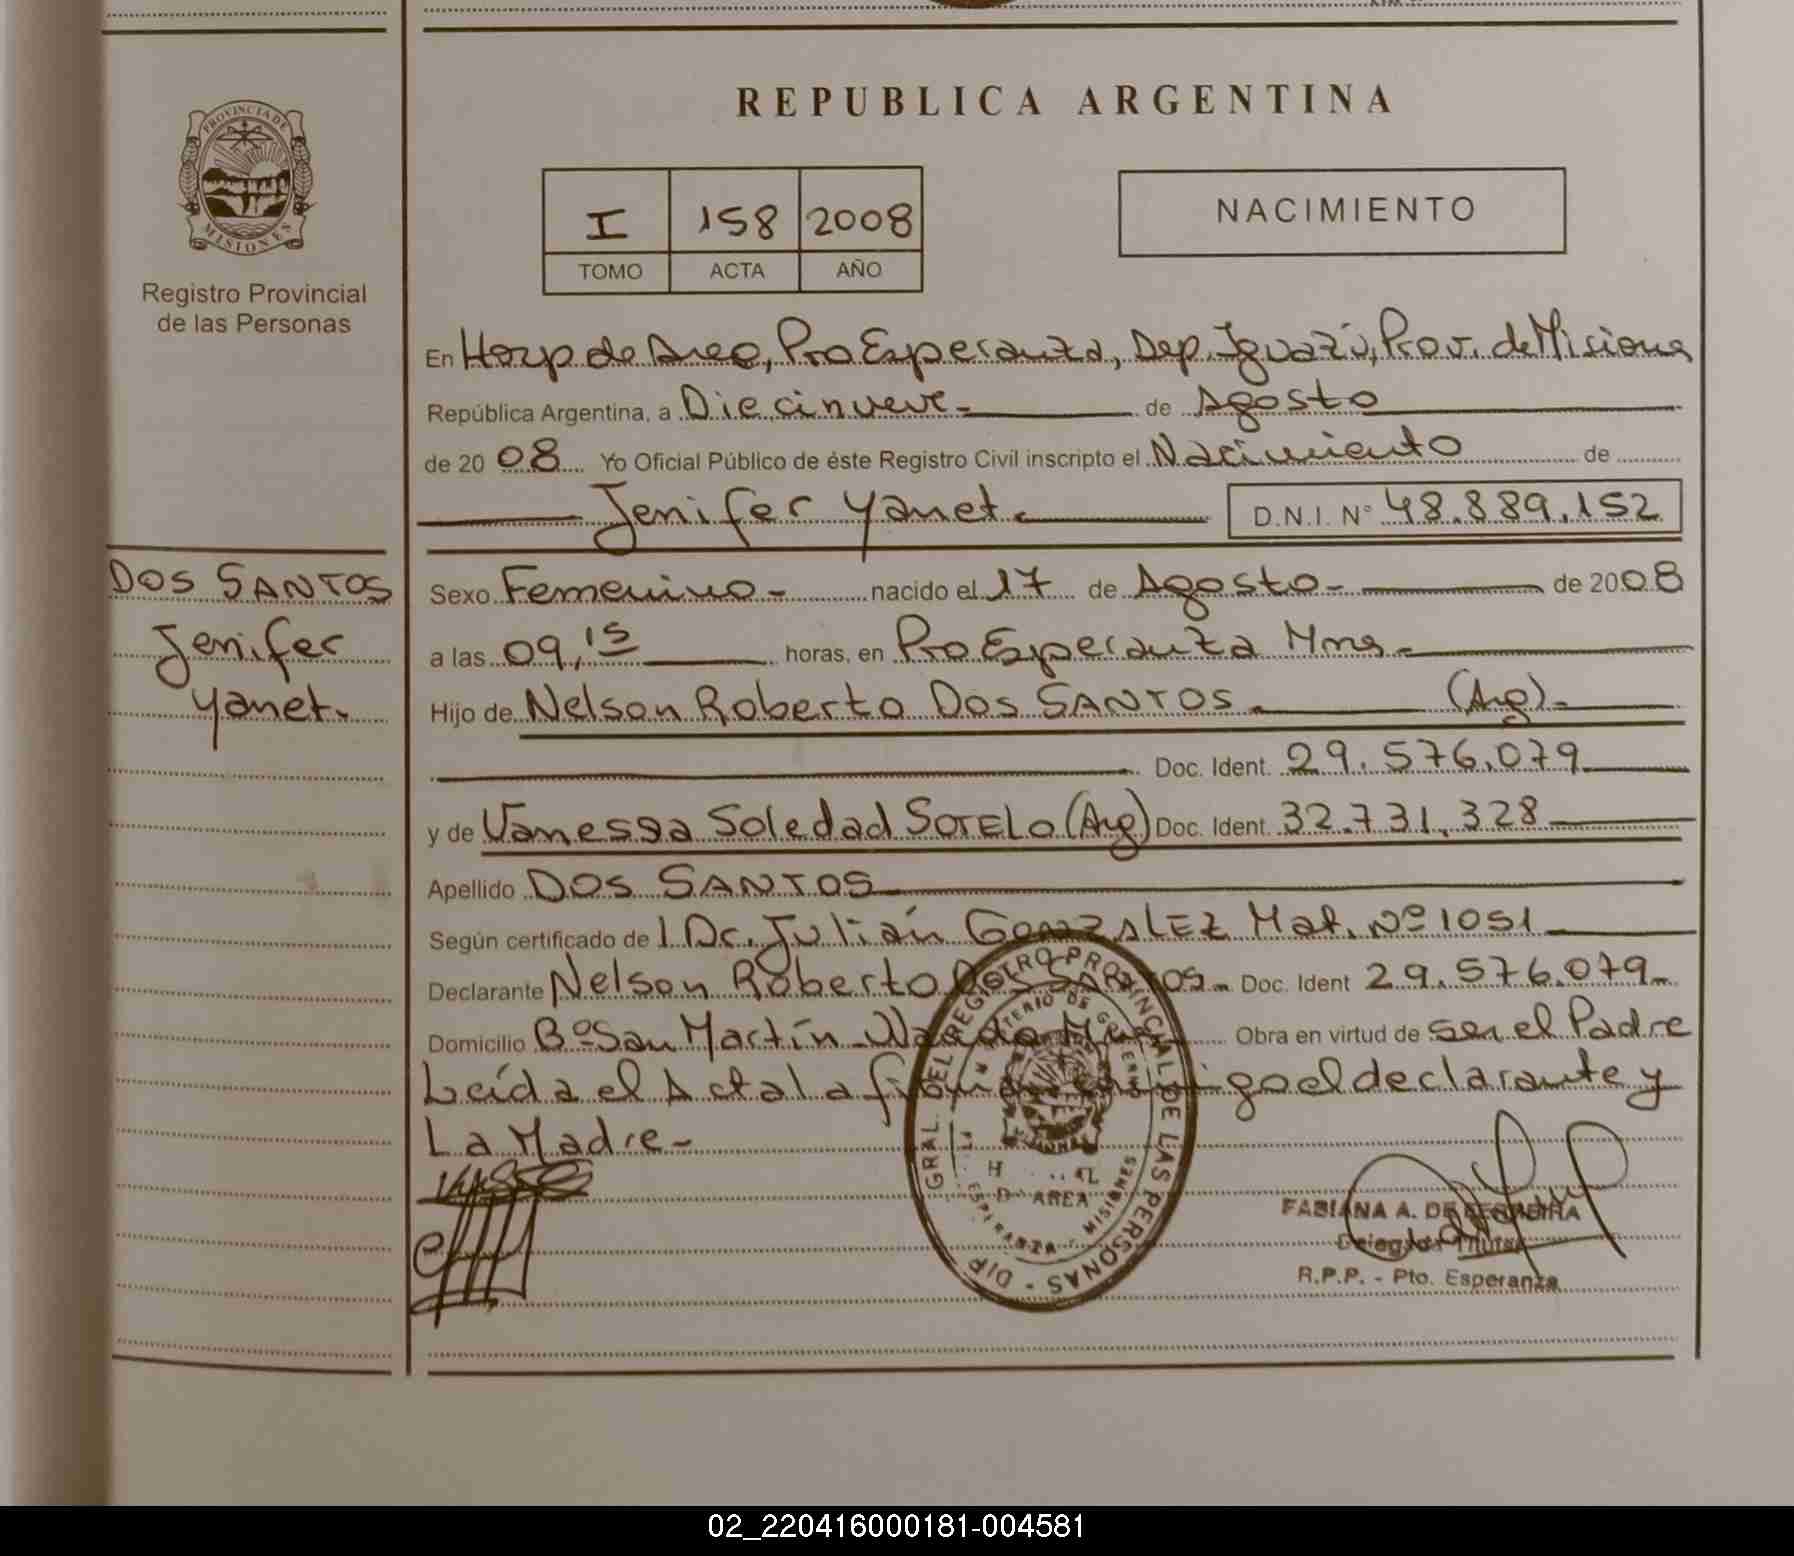 REPUBLICA ARGENTINA
PROVINCIA DE
MISIONES
Registro Provincial
de las Personas
I 158 2008
TOMO ACTA AÑO
NACIMIENTO
En Hosp de Area, Pto Esperanza, Dep. Iguazú, Prov. de Misiones
República Argentina, a Diecinueve- de Agosto
de 20 08 Yo Oficial Público de éste Registro Civil inscripto el Nacimiento de
Jenifer Yanet. D.N.I. N° 48.889.152
DOS SANTOS
Jenifer
Yanet.
Sexo Femenino- nacido el 17 de Agosto- de 2008
a las 09,15 horas, en Pto Esperanza Mnes.
Hijo de Nelson Roberto DOS SANTOS. (Arg).
Doc. Ident. 29.576.079
y de Vanessa Soledad SOTELO (Arg) Doc. Ident. 32.731.328
Apellido DOS SANTOS
Según certificado de 1 Dr. Julián GONZALEZ Mat. Nº 1051
Declarante Nelson Roberto DOS SANTOS- Doc. Ident 29.576.079-
Domicilio Bº San Martín-Wanda Mnes Obra en virtud de ser el Padre
Leída el Acta la firman conmigo el declarante y
La Madre-
GRAL. DEL REGISTRO PROVINCIAL DE LAS PERSONAS - DIP
MINISTERIO DE GOBIERNO
D AREA
ESPERANZA - MISIONES
FABIANA A. DE FERREIRA
Delegada Titular
R.P.P. - Pto. Esperanza
02_220416000181-004581